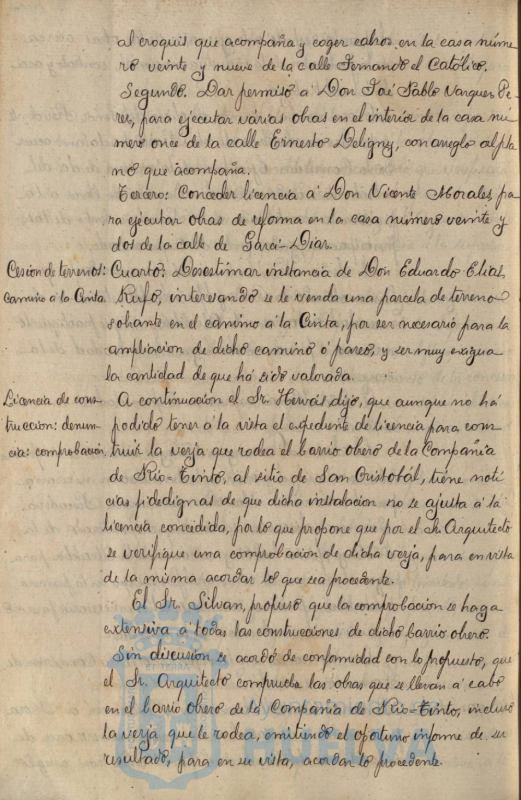 al croquis que acompaña y coger calzos en la casa núme
ro veinte y nueve de la calle Fernando el Católico.
Segundo. Dar permiso á Don José Pablo Vazquez Pe
rez, para ejecutar várias obras en el interior de la casa nú
mero once de la calle Ernesto Deligny, con arreglo al pla
no que acompaña.
Tercero: Conceder licencia á Don Vicente Morales, pa
ra ejecutar obras de reforma en la casa número veinte y
dos de la calle de Garci-Diaz.
Cesion de terrenos: Cuarto: Desestimar instancia de Don Eduardo Elias
Camino á la Cinta Rufo, interesando se le venda una parcela de terreno
sobrante en el camino á la Cinta, por ser necesario para la
ampliacion de dicho camino ó paseo, y ser muy exigua
la cantidad de que há sido valorada.
Licencia de cons A continuacion el Sr. Hervás dijo, que aunque no há
truccion: denun- podido tener á la vista el expediente de licencia para cons
cia: comprobación, truir la verja que rodea el barrio obrero de la Compañia
de Rio-Tinto, al sitio de San Cristobál, tiene noti
cias fidedignas de que dicha instalacion no se ajusta á la
licencia concedida, por lo que propone que por el Sr. Arquitecto
se verifique una comprobacion de dicha verja, para en vista
de la misma acordar lo que sea procedente.
El Sr. Silvan, propuso que la comprobacion se haga
extensiva á todas las construcciones de dicho barrio obrero.
Sin discusion se acordó de conformidad con lo propuesto, que
el Sr. Arquitecto compruebe las obras que se llevan á cabo
en el barrio obrero de la Compañia de Rio-Tinto, incluso
la verja que le rodea, emitiendo el oportuno informe de su
resultado, para en su vista, acordar lo procedente.